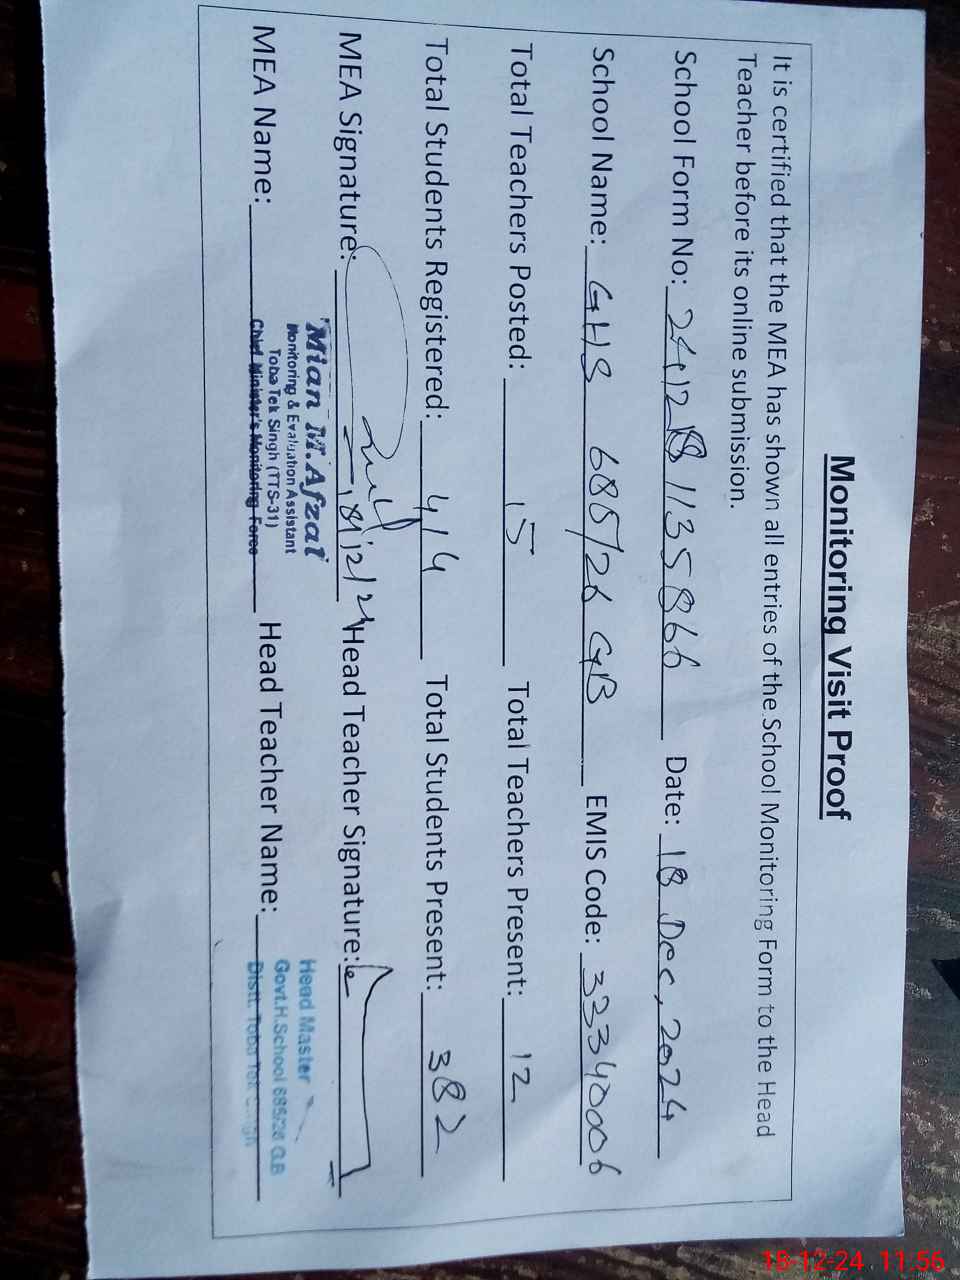 Monitoring Visit Proof
It is certified that the MEA has shown all entries of the School Monitoring Form to the Head
Teacher before its online submission.
School Form No: 241218 1135866 Date: 18 Dec, 2024
School Name: GHS 685/26 GB EMIS Code: 33340006
Total Teachers Posted: 15 Total Teachers Present: 12
Total Students Registered: 414 Total Students Present: 382
MEA Signature: 18/12/24 Head Teacher Signature:
Mian M.Afzal
Monitoring & Evaluation Assistant
Toba Tek Singh (TTS-31)
Chief Minister's Monitoring Force
Head Master
Govt.H.School 685/26 G.B
Distt. Toba Tek Singh
MEA Name: Head Teacher Name:
18-12-24 11:56